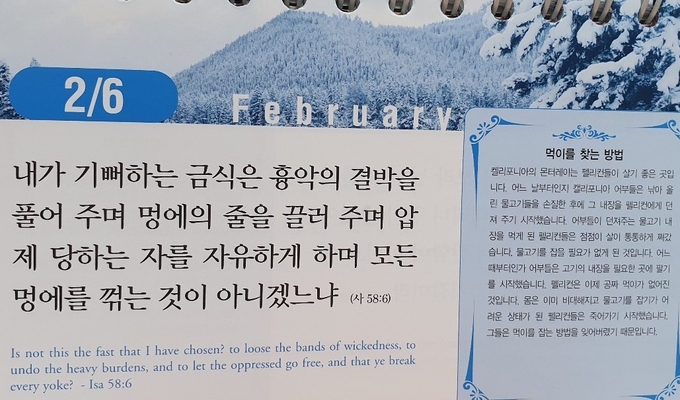 2/6
February
내가 기뻐하는 금식은 흉악의 결박을
풀어 주며 멍에의 줄을 끌러 주며 압
제 당하는 자를 자유하게 하며 모든
멍에를 꺾는 것이 아니겠느냐 (사 58:6)
Is not this the fast that I have chosen? to loose the bands of wickedness, to
undo the heavy burdens, and to let the oppressed go free, and that ye break
every yoke? - Isa 58:6
먹이를 찾는 방법
캘리포니아의 몬터레이는 펠리컨들이 살기 좋은 곳입
니다. 어느 날부터인지 캘리포니아 어부들은 낚아 올
린 물고기들을 손질한 후에 그 내장을 펠리컨에게 던
져 주기 시작했습니다. 어부들이 던져주는 물고기 내
장을 먹게 된 펠리컨들은 점점이 살이 통통하게 쪄갔
습니다. 물고기를 잡을 필요가 없게 된 것입니다. 어느
때부터인가 어부들은 고기의 내장을 필요한 곳에 팔기
를 시작했습니다. 펠리컨은 이제 공짜 먹이가 없어진
것입니다. 몸은 이미 비대해지고 물고기를 잡기가 어
려운 상태가 된 펠리컨들은 죽어가기 시작했습니다.
그들은 먹이를 잡는 방법을 잊어버렸기 때문입니다.